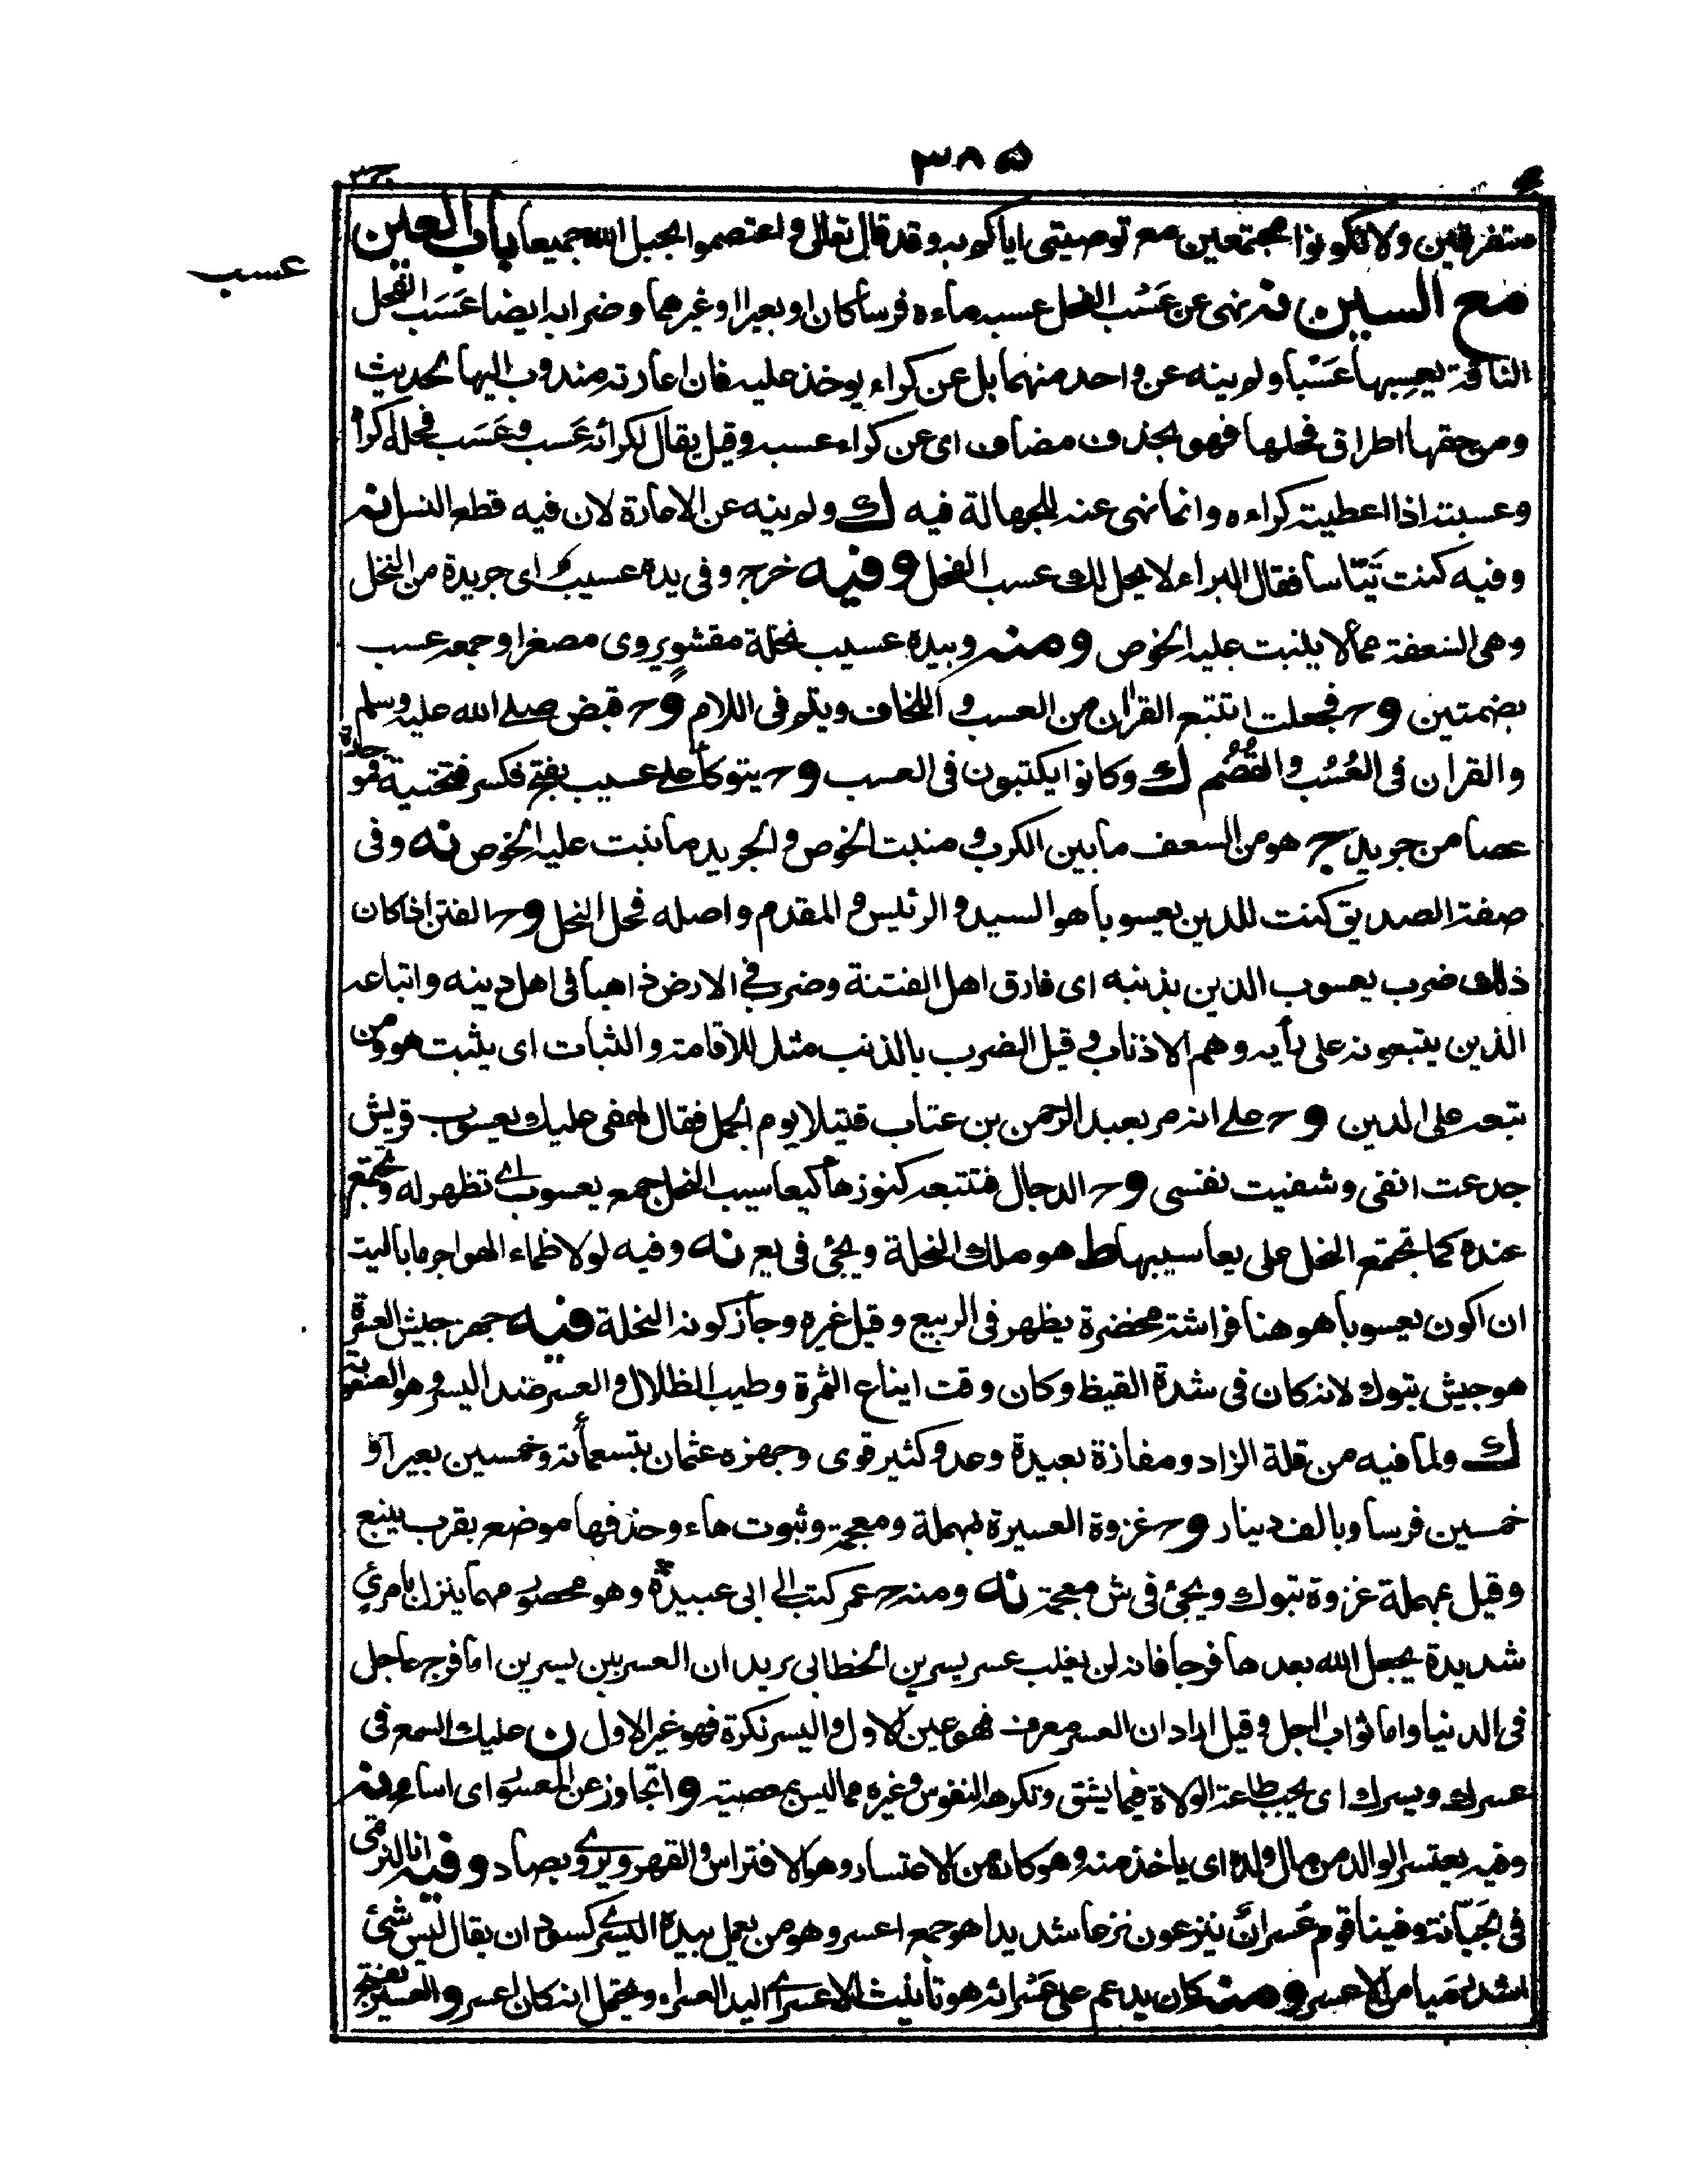 ٣٨٥
عسب
متفرقين ولا تكونوا مجتمعين مع توصيتى اياكم به وقد قال تعالى واعتصموا بحبل الله جميعا باب العين
مع السين نه نهى عن عَسْب الفحل عسبه ماءه فرسا كان او بعيرا او غيرهما وضرابه ايضا عَسَبَ الفحل
الناقة يعسِبها عَسْبا ولم ينه عن واحد منهما بل عن كراء يوخذ عليه فان اعارته مندوب اليها لحديث
ومن حقها اطراق فحلها فهو بحذف مضاف اى عن كراء عسبه وقيل يقال لكرائه عَسب وعَسَب فحله اكراه
وعسبته اذا اعطيته كراءه وانما نهى عنه للجهالة فيه ك ولم ينه عن الاعارة لان فيه قطع النسل نه
وفيه كنت تَيّاسا فقال البراء لا يحل لك عسب الفحل وفيه خرج وفى يده عسيب اى جريدة من النخل
وهى السعفة مما لا ينبت عليه الخوص ومنه وبيده عسيب نخلة مقشو يروى مصغرا وجمعه عسب
بضمتين وح فجعلت اتتبع القران من العسب و اللخاف ويتم فى اللام وح قبض صلے الله عليه وسلم
والقران فى العُسُب والقُضُم ك وكانوا يكتبون فى العسب وح يتوكأ علے عسيب بفتح فكسر فتحتية
عصا من جريد ج هو من السعف ما بين الكرب و منبت الخوص و الجريد ما نبت عليه الخوص نه وفى
صفة الصديق كنت للدين يعسوبا هو السيد و الرئيس و المقدم واصله فحل النحل وح الفتن اذا كان
ذلك ضرب يعسوب الدين بذنبه اى فارق اهل الفتنة وضرب فى الارض ذاهبا فى اهل دينه واتباعه
الذين يتبعونه على رأيه وهم الاذناب و قيل الضرب بالذنب مثل للاقامة والثبات اى يثبت هو ومن
تبعه على الدين وح علے انه مر بعبد الرحمن بن عتاب قتيلا يوم الجمل فقال لهفى عليك يعسوب قريش
جدعت انفى وشفيت نفسى وح الدجال فتتبعه كنوزها كيعاسيب النحل جمع يعسوب اے تظهر له وتجتمع
عنده كما تجتمع النحل على يعاسيبها ط هو ملك النحلة ويجئ فى يع نه وفيه لولا ظماء الهواجر ما باليت
ان اكون يعسوبا هو هنا فراشة مخضرة يظهر فى الربيع وقيل غيره وجاز كونه النحلة فيه جهز جيش العسرة
هو جيش تبوك لانه كان فى شدة القيظ وكان وقت ايناع الثمرة وطيب الظلال و العسر ضد اليسر وهو الصعوبة
ك ولما فيه من قلة الزاد ومفازة بعيدة وعدو كثير قوى وجهزه عثمان بتسعمائة وخمسين بعيرا و
خمسين فرسا وبالف دينار وح غزوة العسيرة بمهملة ومعجمة وثبوت هاء وحذفها موضع بقرب ينبع
وقيل بمهملة غزوة تبوك ويجئ فى ش معجمة نه ومنه ح عمر كتب الى ابى عبيدة وهو محصور مهما ينزل بامرئ
شديدة يجعل الله بعدها فرجا فانه لن يغلب عسر يسرين الخطابى يريد ان العسر بين يسرين اما فرج عاجل
فى الدنيا واما ثواب اجل و قيل اراد ان العسر معرف فهو عين الاول و اليسر نكرة فهو غير الاول ن عليك السمع فى
عسرك ويسرك اى يجب طاعة الولاة فيما يشق وتكرهه النفوس وغيره مما ليس بمعصية و اتجاوز عن المعسر اى اسامح نه
وفيه يعتسر الوالد من مال ولده اى ياخذ منه وهو كاره من الاعتسار وهو الافتراس والقهر ويروے بصاد وفيه انا لنرتمى
فى الجَبّانة وفينا قوم عُسران ينزعون نزعا شديدا هو جمع اعسر وهو من يعمل بيده اليسرے كسودان يقال ليس شئ
اشد رميا من الاعسر ومنه كان يدعم على عَسْرائه هو تأنيث الاعسر اے اليد العسراء ويحتمل انه كان اعسر و العسير بفتح